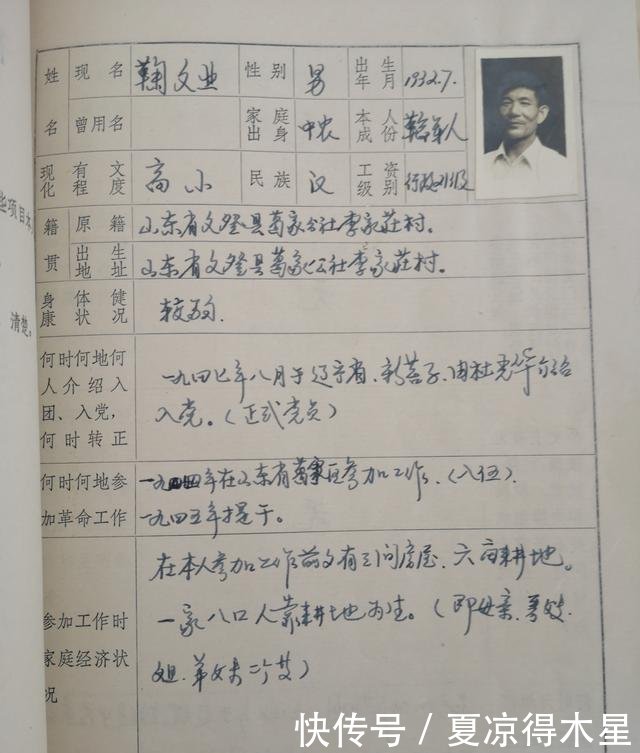 姓名 现名 鞠文业 性别 男 出生年月 1932.7.
曾用名 家庭出身 中农 本人成份 革军人
现有文化程度 高小 民族 汉 工资级别 行政
籍贯 原籍 山东省文登县葛家公社李家莊村。
出生地址 山东省文登县葛家公社李家莊村。
身体健康状况
何时何地何人介绍入团、入党,何时转正
一九四七年八月于辽宁省、由杜 介绍
入党。(正式党员)
何时何地参加革命工作
一九四四年在山东省葛家区参加工作、(入伍).
一九四五年提干。
参加工作时家庭经济状况
在本人参加工作前 有三间房屋、六亩耕地。
一家八口人靠耕地为生。(即母亲、哥嫂、
姐、弟
项目本
清楚。
快传号 / 夏凉得木星